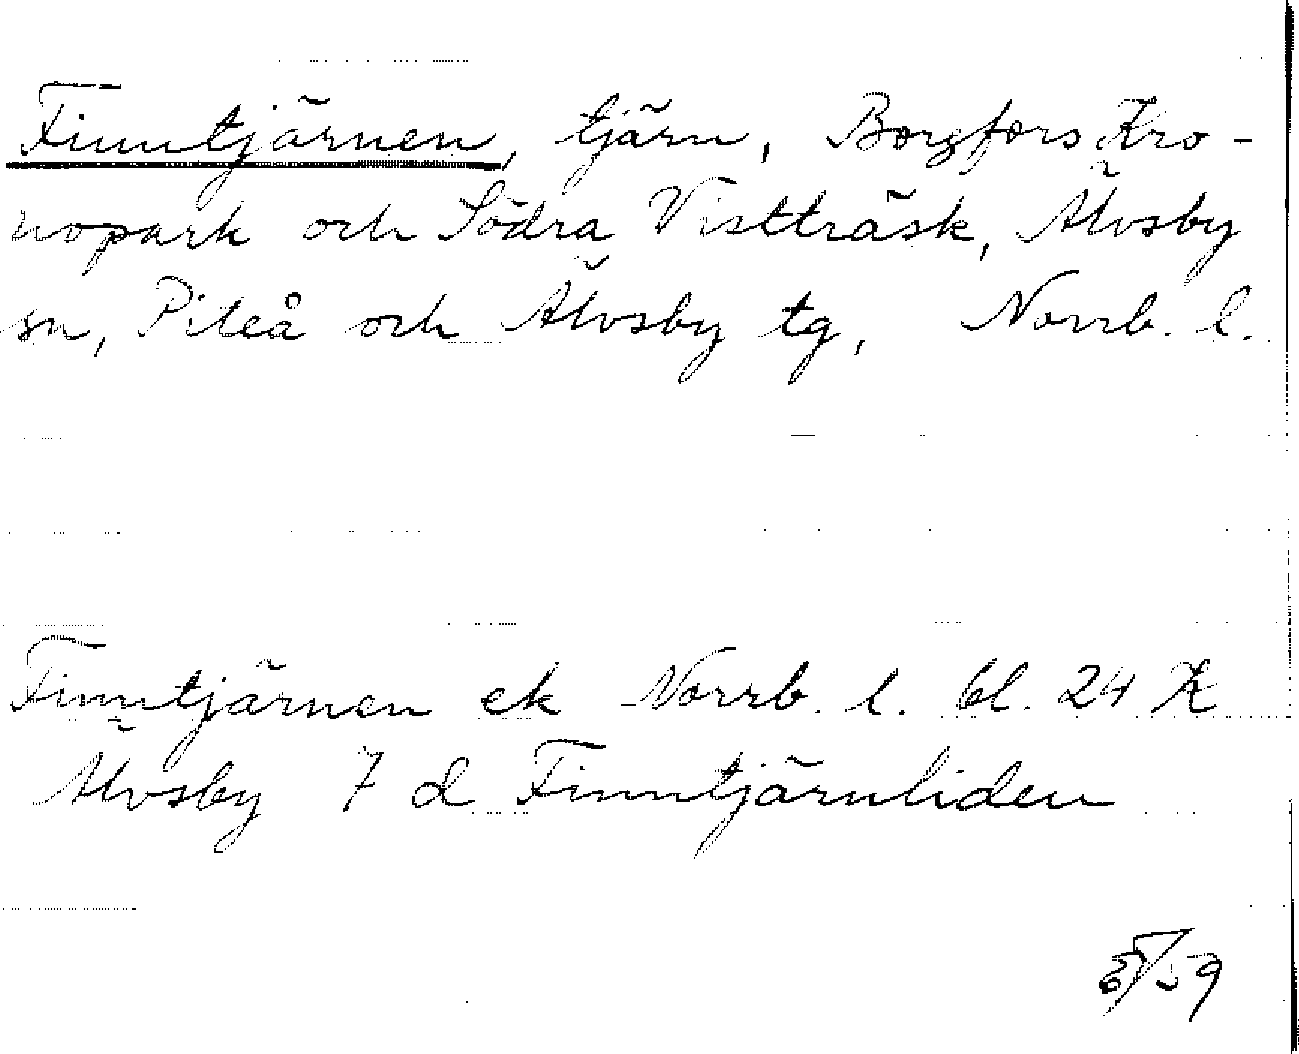 Finntjärnen, tjärn, Borgfors Kro-
nopark och Södra Vistträsk, Älvsby
sn, Piteå och Älvsby tg, Norrb. l.
Finntjärnen ek Norrb. l. bl. 24 K
Älvsby 7 d Finntjärnliden